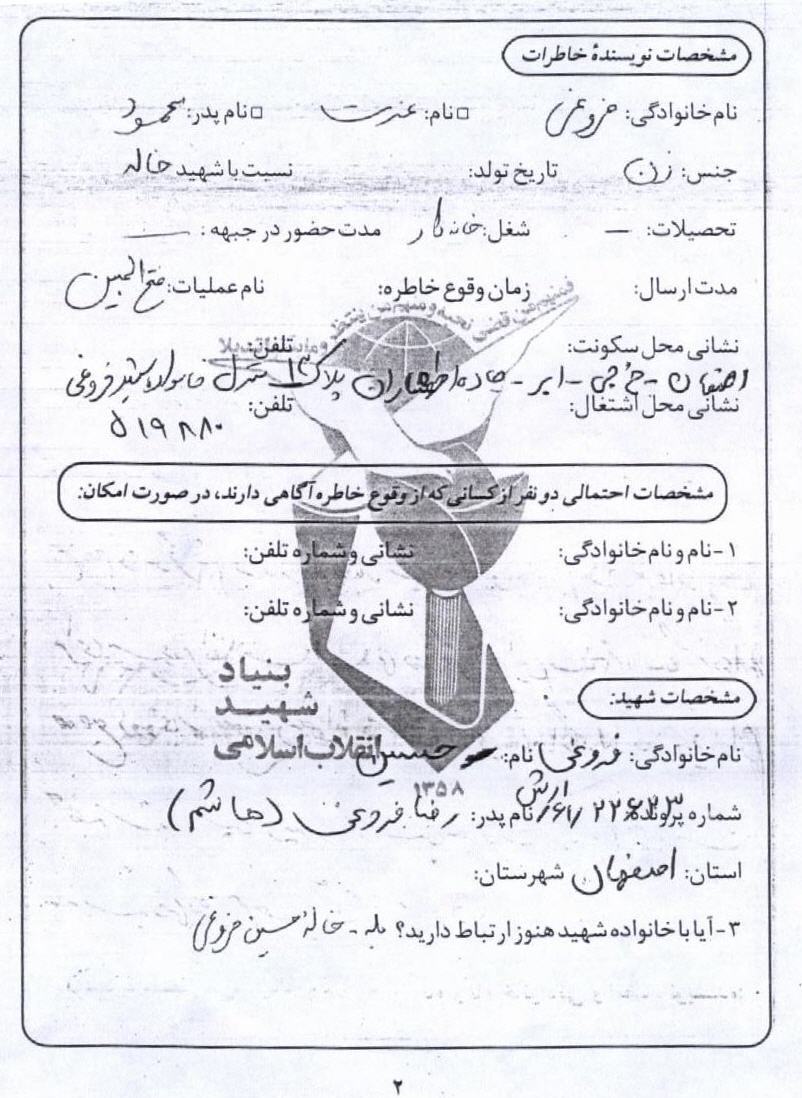 مشخصات نویسندهٔ خاطرات
نام خانوادگی: فروغی □ نام: عذرت □ نام پدر: محمود
جنس: زن تاریخ تولد: نسبت با شهید خاله
تحصیلات: — شغل: خانه‌دار مدت حضور در جبهه: —
مدت ارسال: زمان وقوع خاطره: نام عملیات: فتح المبین
فمنهم من قضی نحبه و منهم من ینتظر و ما بدلوا تبدیلا
نشانی محل سکونت: تلفن:
اصفهان - خ جی - ابر - جاده پلاک ۱۳ منزل خانواده شهید فروغی
نشانی محل اشتغال: تلفن:
۵۱۹۸۸۰
مشخصات احتمالی دو نفر از کسانی که از وقوع خاطره آگاهی دارند، در صورت امکان:
۱- نام و نام خانوادگی: نشانی و شماره تلفن:
۲- نام و نام خانوادگی: نشانی و شماره تلفن:
بنیاد
شهید
انقلاب اسلامی
۱۳۵۸
مشخصات شهید:
نام خانوادگی: فروغی نام: حسین
شماره پرونده: ۲۲۶۲۳/۶۱/ارتش نام پدر: رضا فروغی (هاشم)
استان: اصفهان شهرستان:
۳- آیا با خانواده شهید هنوز ارتباط دارید؟ بله - خالهٔ حسین فروغی
۲